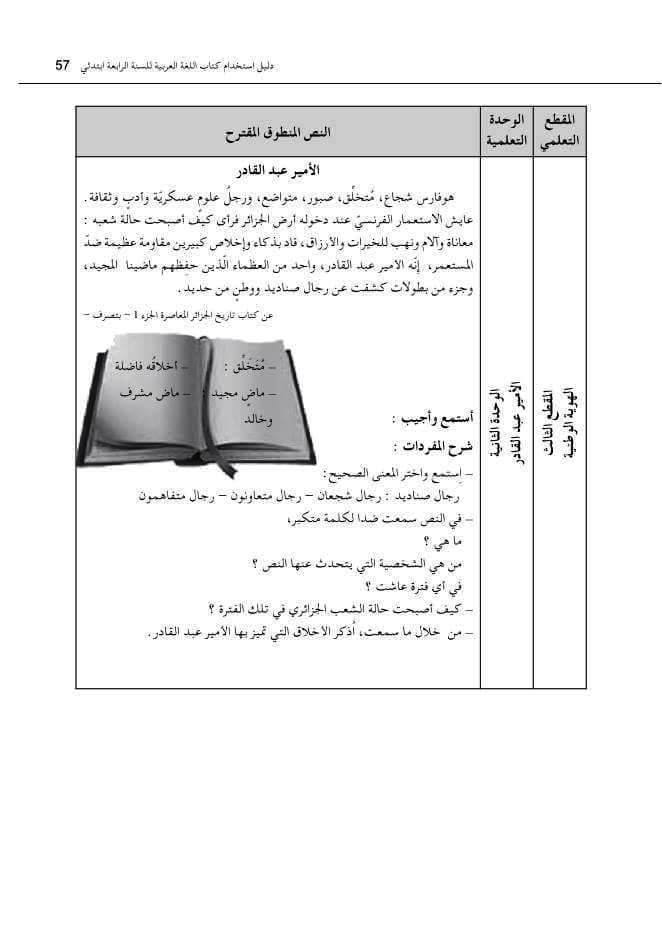 دليل استخدام كتاب اللغة العربية للسنة الرابعة ابتدئي 57
المقطع التعلمي
الوحدة التعلمية
النص المنطوق المقترح
المقطع الثالث
الهوية الوطنية
الوحدة الثانية
الأمير عبد القادر
الأمير عبد القادر
هوفارس شجاع، مُتخلِّق، صبور، متواضع، ورجلُ علومٍ عسكريّة وأدبٍ وثقافة.
عايش الاستعمار الفرنسيّ عند دخوله أرض الجزائر فرأى كيف أصبحت حالة شعبه :
معاناة وآلام ونهب للخيرات والأرزاق، قاد بذكاء وإخلاص كبيرين مقاومة عظيمة ضدّ
المستعمر، إنّه الامير عبد القادر، واحد من العظماء الّذين حفِظهم ماضينا المجيد،
وجزء من بطولات كشفت عن رجال صناديد ووطنٍ من حديد.
عن كتاب تاريخ الجزائر المعاصرة الجزء 1 – بتصرف –
– مُتَخَلِّق : – أخلاقُه فاضلة
– ماضٍ مجيد : – ماض مشرف
وخالد
أستمع وأجيب :
شرح المفردات :
– اِستمع واختر المعنى الصحيح:
رجال صناديد : رجال شجعان – رجال متعاونون – رجال متفاهمون
– في النص سمعت ضدا لكلمة متكبر،
ما هي ؟
من هي الشخصية التي يتحدث عنها النص ؟
في أي فترة عاشت ؟
– كيف أصبحت حالة الشعب الجزائري في تلك الفترة ؟
– من خلال ما سمعت، اُذكر الأخلاق التي تميز بها الأمير عبد القادر.